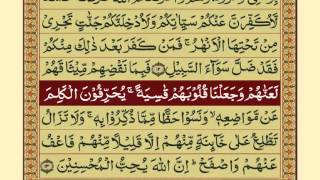 لَاُكَفِّرَنَّ عَنْكُمْ سَيِّاٰتِكُمْ وَلَاُدْخِلَنَّكُمْ جَنّٰتٍ تَجْرِىْ
مِنْ تَحْتِهَا الْاَنْهٰرُ ۚ فَمَنْ كَفَرَ بَعْدَ ذٰلِكَ مِنْكُمْ
فَقَدْ ضَلَّ سَوَآءَ السَّبِيْلِ ﴿۱۲﴾ فَبِمَا نَقْضِهِمْ مِّيْثَاقَهُمْ
لَعَنّٰهُمْ وَجَعَلْنَا قُلُوْبَهُمْ قٰسِيَةً ۚ يُحَرِّفُوْنَ الْكَلِمَ
عَنْ مَّوَاضِعِهٖ ۙ وَنَسُوْا حَظًّا مِّمَّا ذُكِّرُوْا بِهٖ ۚ وَلَا تَزَالُ
تَطَّلِعُ عَلٰى خَآئِنَةٍ مِّنْهُمْ اِلَّا قَلِيْلًا مِّنْهُمْ فَاعْفُ
عَنْهُمْ وَاصْفَحْ ؕ اِنَّ اللّٰهَ يُحِبُّ الْمُحْسِنِيْنَ ﴿۱۳﴾